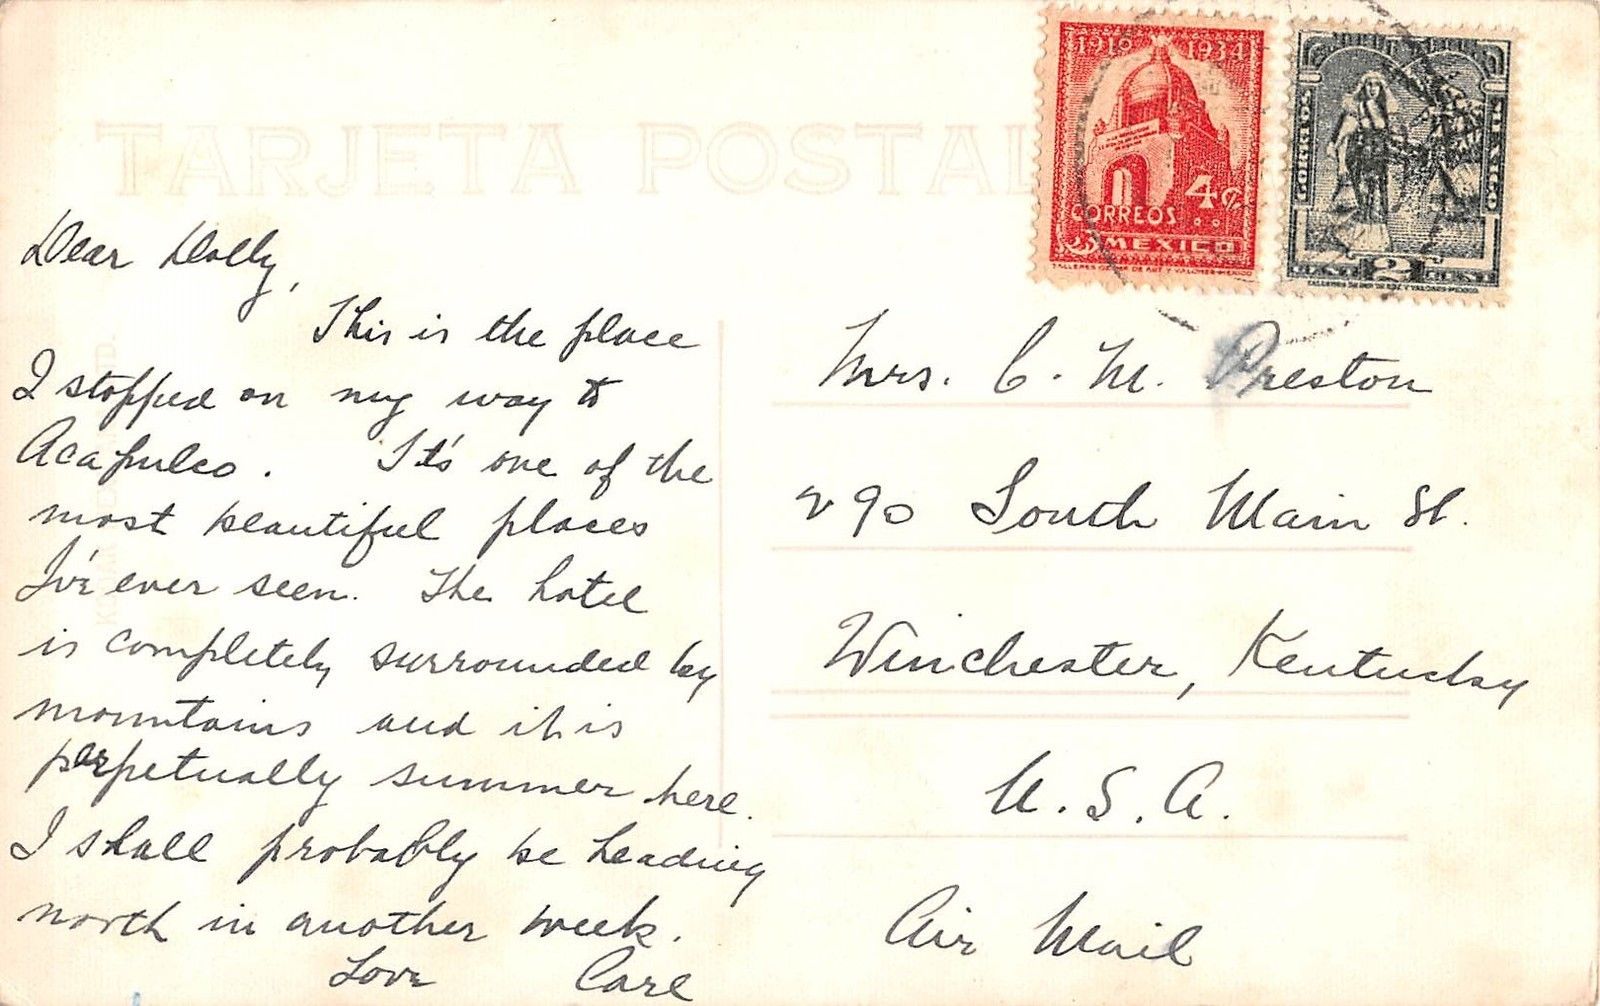 TARJETA POSTAL
1910 1934
4 ¢
CORREOS
MEXICO
TALLERES DE IMP. DE EST. Y VALORES-MEXICO
CORREOS MEXICO
2
TALLERES DE IMP. DE EST. Y VALORES-MEXICO
Dear Dolly,
This is the place
I stopped on my way to
Acapulco. It's one of the
most beautiful places
I've ever seen. The hotel
is completely surrounded by
mountains and it is
perpetually summer here.
I shall probably be heading
north in another week.
Love Carl
Mrs. C. M. Preston
290 South Main St.
Winchester, Kentucky
U. S. A.
Air Mail